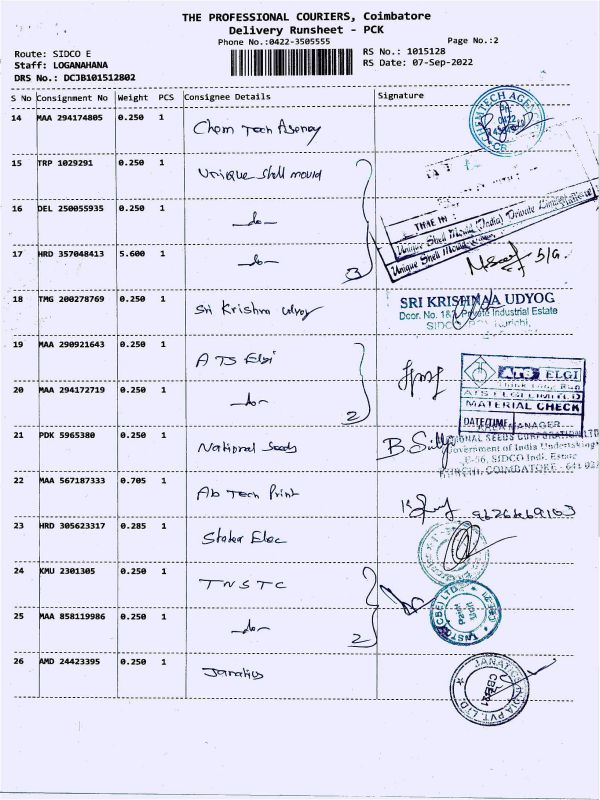 THE PROFESSIONAL COURIERS, Coimbatore
Delivery Runsheet - PCK
Phone No.:0422-3505555 Page No.:2
Route: SIDCO E RS No.: 1015128
Staff: LOGANAHANA RS Date: 07-Sep-2022
DRS No.: DCJB101512802
S No Consignment No Weight PCS Consignee Details Signature
14 MAA 294174805 0.250 1 Chem Tech Agency
15 TRP 1029291 0.250 1 Unique Shell mould
16 DEL 250055935 0.250 1 -do-
17 HRD 357048413 5.600 1 -do- 3
Unique Shell Mould (India) Private Limited
18 TMG 200278769 0.250 1 Sri Krishna udyog
SRI KRISHNAA UDYOG
Door. No. Private Industrial Estate
SIDCO Kurichi,
19 MAA 290921643 0.250 1 ATS Elgi
20 MAA 294172719 0.250 1 -do- 2
ATS ELGI
ATS ELGI LIMITED
MATERIAL CHECK
DATE/TIME
MANAGER
21 PDK 5965380 0.250 1 National Seeds
NATIONAL SEEDS CORPORATION LTD
Government of India Undertaking
E-56, SIDCO Indl. Estate
KURICHI, COIMBATORE - 641 02
22 MAA 567187333 0.705 1 Ab Tech Print
9626669163
23 HRD 305623317 0.285 1 Elec
24 KMU 2301305 0.250 1 TNSTC
25 MAA 858119986 0.250 1 -do- 2
26 AMD 24423395 0.250 1 Janatics
JANATICS INDIA PVT. LTD.